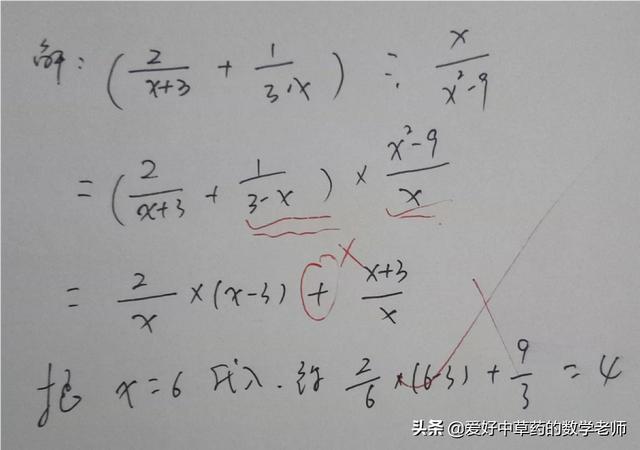 解：(2/(x+3) + 1/(3-x)) ÷ x/(x²-9)
= (2/(x+3) + 1/(3-x)) × (x²-9)/x
= 2/x ×(x-3) + (x+3)/x
把 x=6 代入.得 2/6 ×(6-3) + 9/3 = 4
头条 @爱好中草药的数学老师